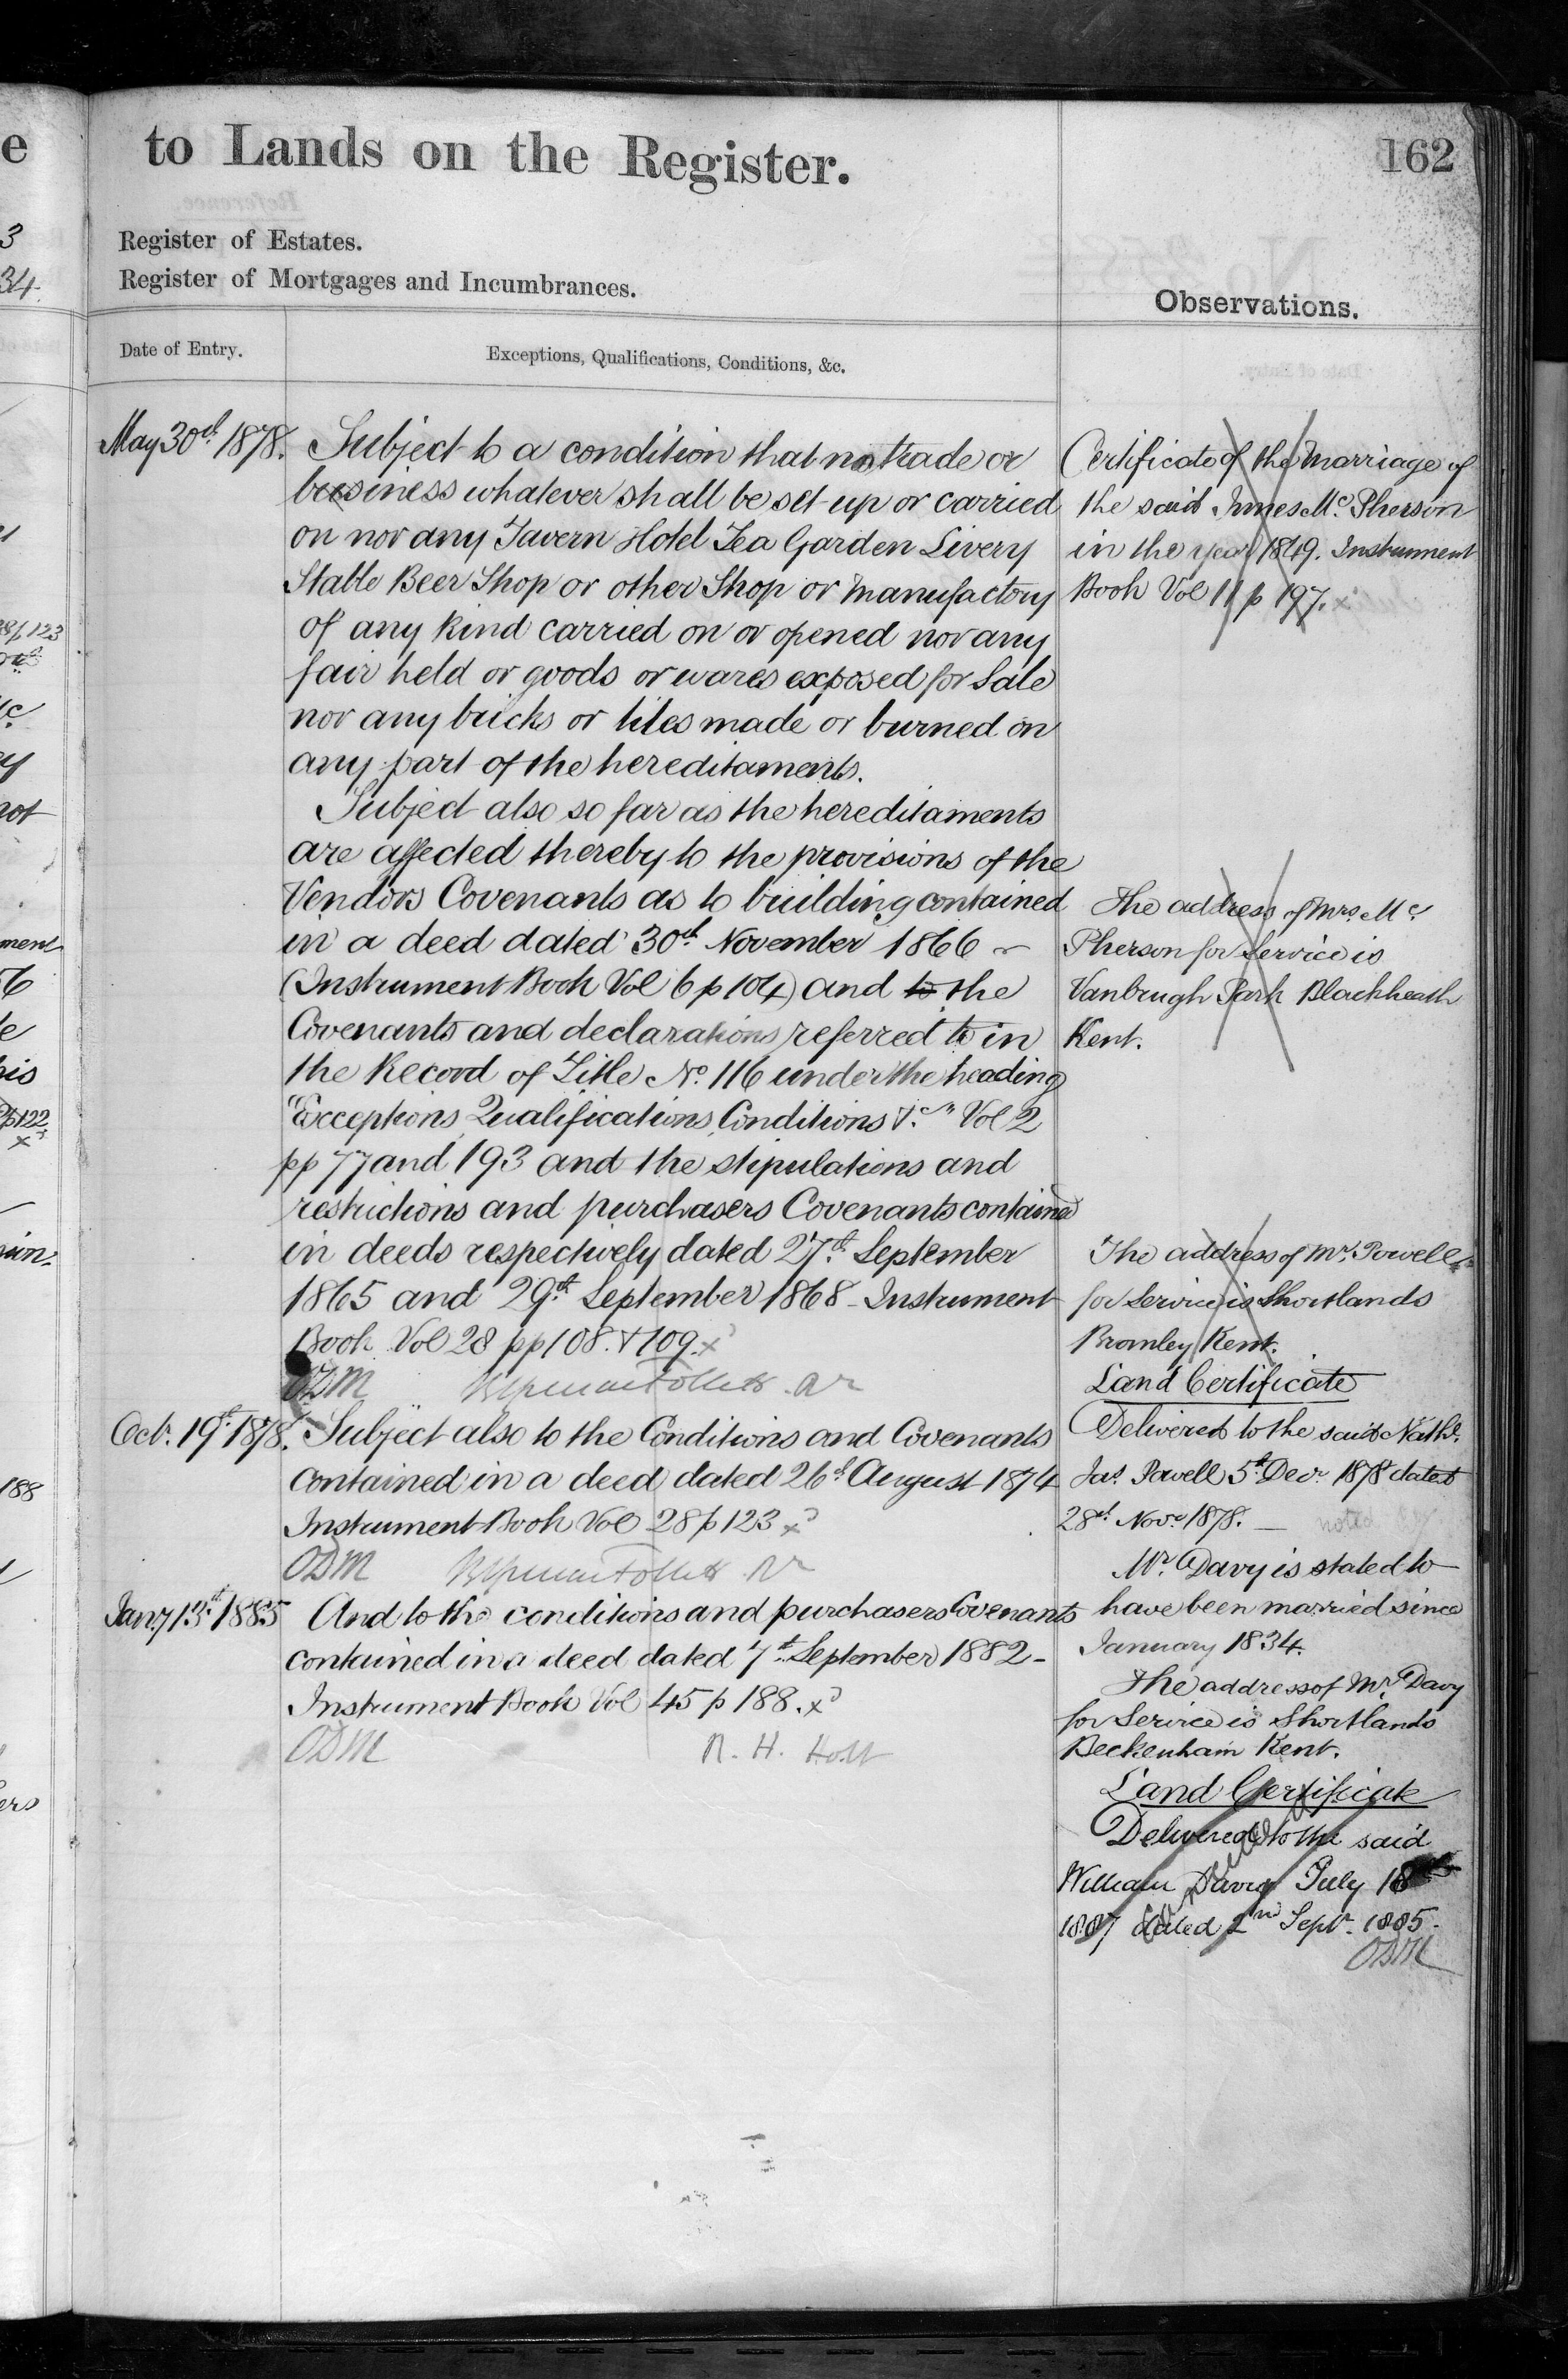 to Lands on the Register.
162
Register of Estates.
Register of Mortgages and Incumbrances.
Observations.
Date of Entry.
Exceptions, Qualifications, Conditions, &c.
May 30th 1878.
Subject to a condition that no trade or
business whatever shall be set up or carried
on nor any Tavern Hotel Tea Garden Livery
Stable Beer Shop or other Shop or manufactory
of any kind carried on or opened nor any
fair held or goods or wares exposed for Sale
nor any bricks or tiles made or burned on
any part of the hereditaments.
Subject also so far as the hereditaments
are affected thereby to the provisions of the
Vendors Covenants as to building contained
in a deed dated 30th November 1866
(Instrument Book Vol 6 p 104) and to the
Covenants and declarations referred to in
the Record of Title No. 116 under the heading
"Exceptions, Qualifications, Conditions &c" Vol 2
pp 77 and 193 and the stipulations and
restrictions and purchasers Covenants contained
in deeds respectively dated 27th September
1865 and 29th September 1868 - Instrument
Book Vol 28 pp 108. & 109. x
ODM
Oct. 19th 1878.
Subject also to the Conditions and Covenants
contained in a deed dated 26th August 1874
Instrument Book Vol 28 p 123 x
ODM
Jany 13th 1885
And to the conditions and purchasers Covenants
contained in a deed dated 7th September 1882 -
Instrument Book Vol 45 p 188. x
ODM R. H. Holt
Certificate of the Marriage of
the said Innes Mc. Pherson
in the year 1849. Instrument
Book Vol 11 p 197. x
The address of Mrs. Mc
Pherson for Service is
Vanbrugh Park Blackheath
Kent.
The address of Mr. Powell
for Service is Shortlands
Bromley Kent.
Land Certificate
Delivered to the said Nathl.
Jas. Powell 5th Decr. 1878 dated
28th Novr. 1878. — noted
Mr. Davy is stated to
have been married since
January 1834.
The address of Mr. Davy
for Service is Shortlands
Beckenham Kent.
Land Certificate
Delivered to the said
William Davy July 18th
1887 dated 2nd Septr. 1885.
ODM